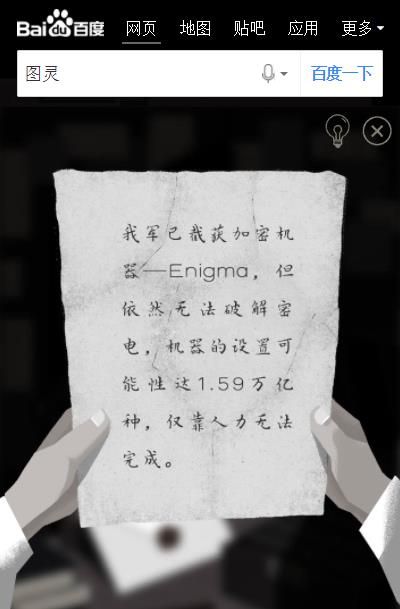 Bai du 百度
网页 地图 贴吧 应用 更多
图灵 百度一下
我军已截获加密机
器—Enigma，但
依然无法破解密
电，机器的设置可
能性达1.59万亿
种，仅靠人力无法
完成。